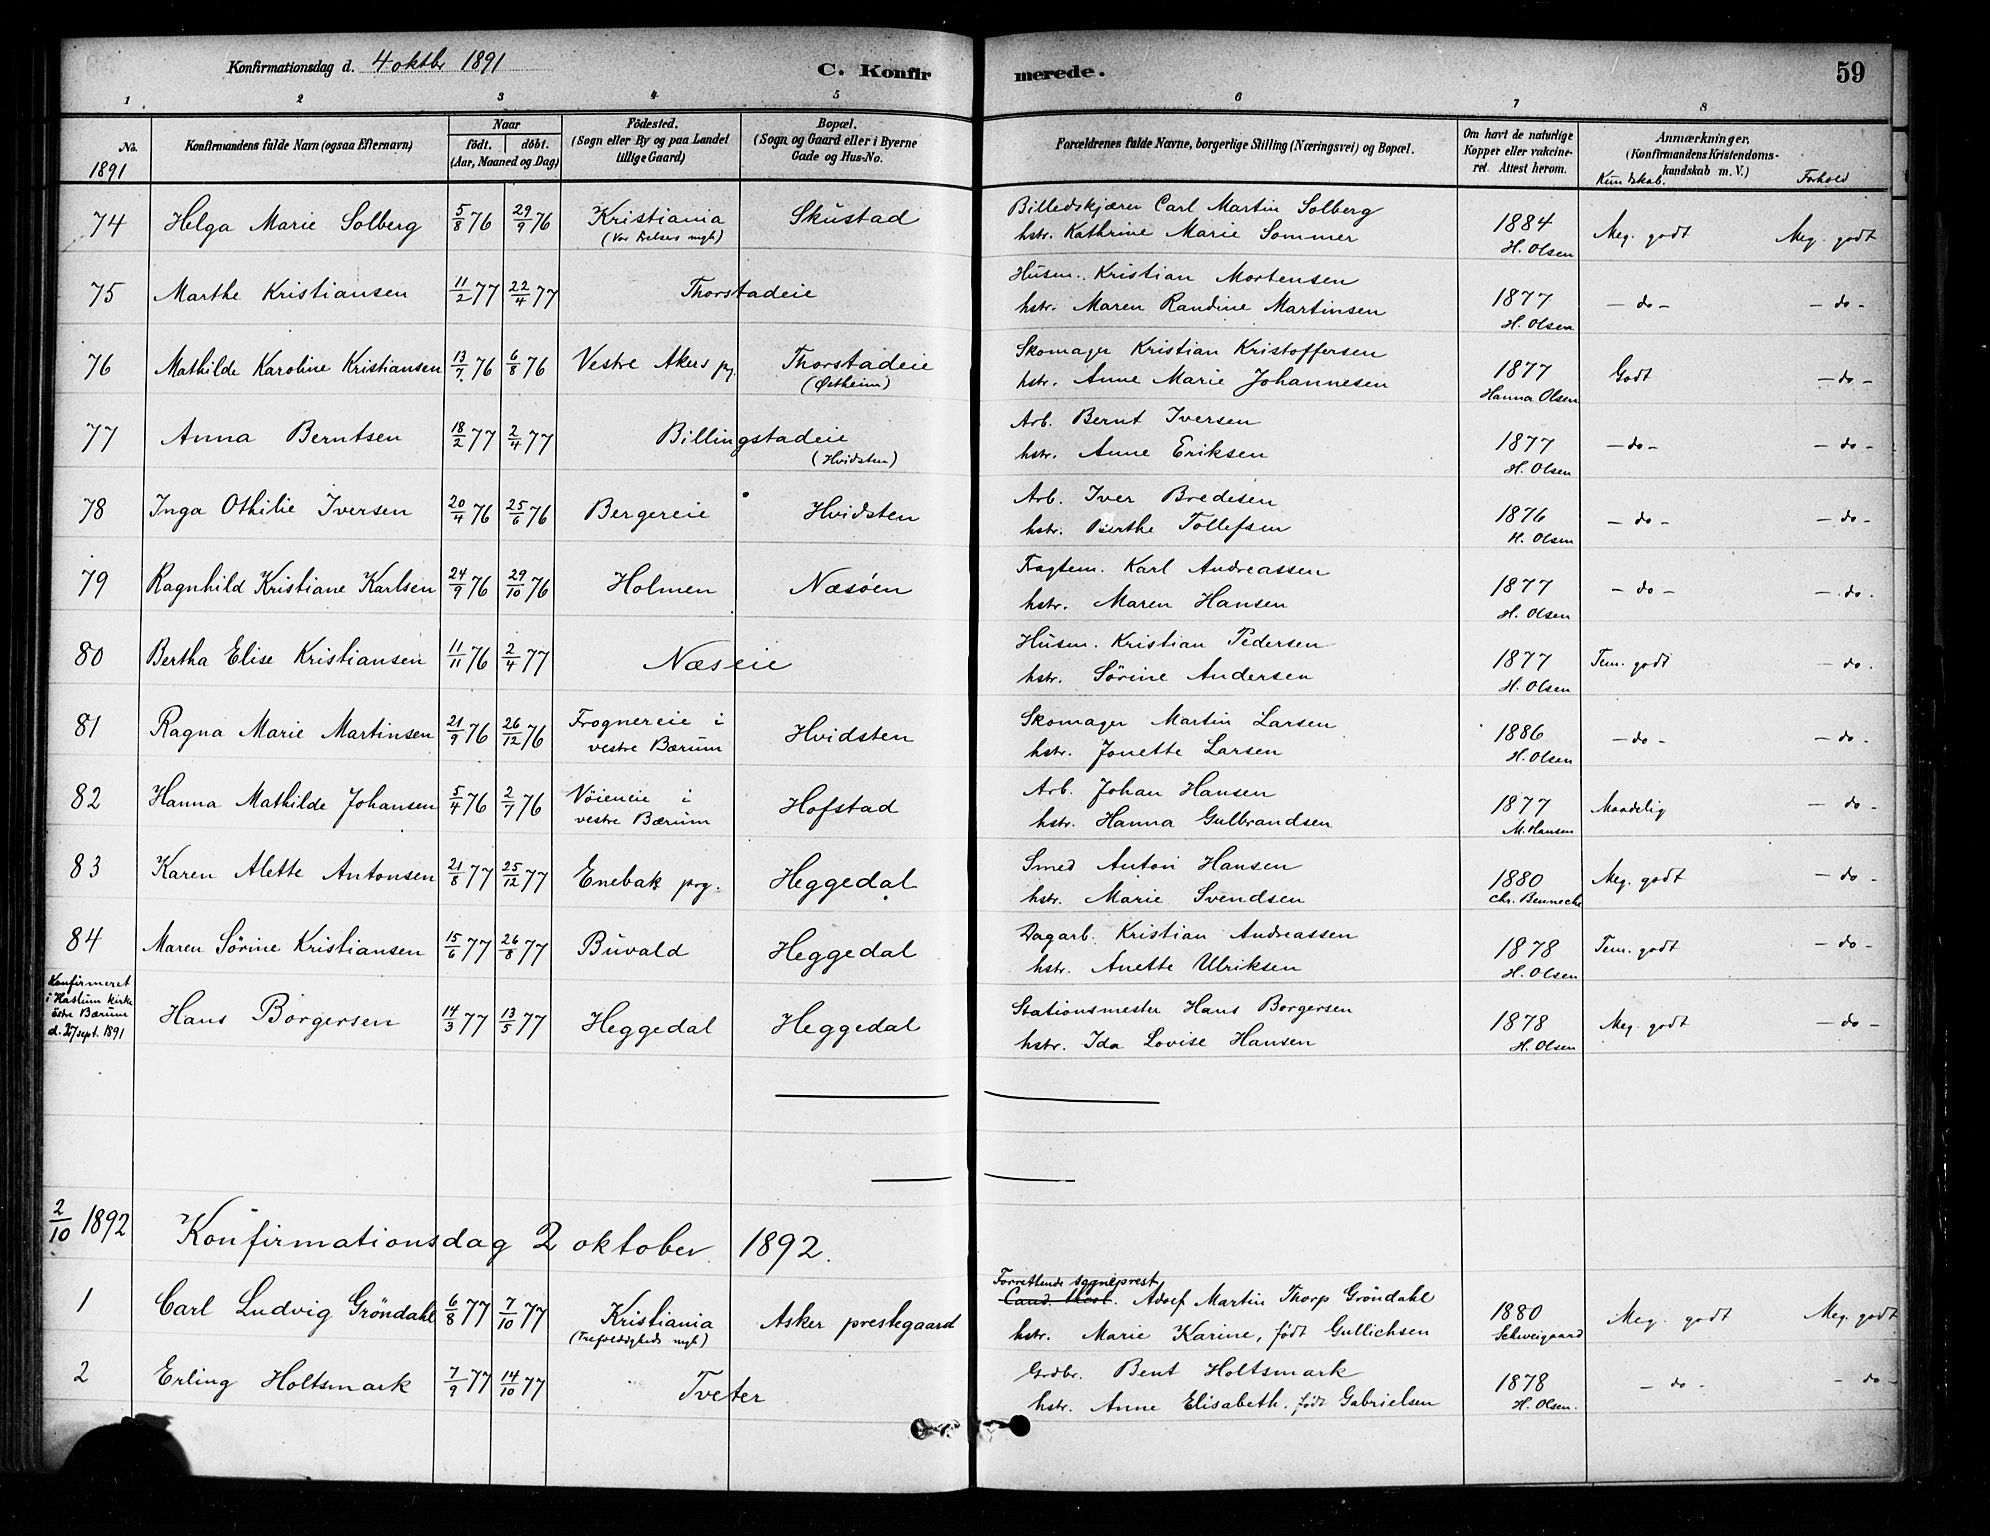 Konfirmationsdag d. 4 oktbr 1891 C. Konfir merede. 59
1 2 3 4 5 6 7 8
No. 1891
Konfirmandens fulde Navn (ogsaa Efternavn)
Naar
født. døbt.
(Aar, Maaned og Dag)
Fødested.
(Sogn eller By og paa Landet
tillige Gaard)
Bopæl.
(Sogn og Gaard eller i Byerne
Gade og Hus-No.
Forældrenes fulde Navne, borgerlige Stilling (Næringsvei) og Bopæl.
Om havt de naturlige
Kopper eller vakcine-
ret. Attest herom.
Anmærkninger,
(Konfirmandens Kristendoms-
kundskab m. V.)
Kundskab. Forhold
74 Helga Marie Solberg 5/8 76 29/9 76 Kristiania Skustad Billedskjærer Carl Martin Solberg 1884 Meg. godt Meg. godt
(Vor Frelsers mgh) hstr. Kathrine Marie Sommer H. Olsen
75 Marthe Kristiansen 11/2 77 22/4 77 Thorstadeie Husm. Kristian Mortensen 1877 - do - - do -
hstr. Maren Randine Martinsen H. Olsen
76 Mathilde Karoline Kristiansen 13/7 76 6/8 76 Vestre Akers pg. Thorstadeie Skomager Kristian Kristoffersen 1877 Godt - do -
(Østheim) hstr. Anne Marie Johannesen Hanna Olsen
77 Anna Berntsen 18/2 77 2/4 77 Billingstadeie Arb. Bernt Iversen 1877 - do - - do -
(Hvidsten) hstr. Anne Eriksen H. Olsen
78 Inga Othilie Iversen 20/4 76 25/6 76 Bergereie Hvidsten Arb. Iver Bredesen 1876 - do - - do -
hstr. Berthe Tollefsen H. Olsen
79 Ragnhild Kristiane Karlsen 24/9 76 29/10 76 Holmen Næsøen Fragtem. Karl Andreassen 1877 - do - - do.
hstr. Maren Hansen H. Olsen
80 Bertha Elise Kristiansen 11/11 76 2/4 77 Næseie Husm. Kristian Pedersen 1877 Tem. godt - do.
hstr. Sørine Andersen H. Olsen
81 Ragna Marie Martinsen 21/9 76 26/12 76 Frognereie i Hvidsten Skomager Martin Larsen 1886 - do - - do -
vestre Bærum hstr. Jonette Larsen H. Olsen
82 Hanna Mathilde Johansen 5/4 76 2/7 76 Vøieneie i Hofstad Arb. Johan Hansen 1877 Maadelig - do -
vestre Bærum hstr. Hanna Gulbrandsen M. Hansen
83 Karen Alette Antonsen 21/8 77 25/12 77 Enebak prg. Heggedal Smed Anton Hansen 1880 Meg. godt - do -
hstr. Marie Svendsen Chr. Bennecke
84 Maren Sørine Kristiansen 15/6 77 26/8 77 Buvald Heggedal Dagarb. Kristian Andreassen 1878 Tem. godt - do -
hstr. Anette Ulriksen H. Olsen
Konfirmeret
i Haslum kirke
østre Bærum
d. 27 sept. 1891
Hans Borgersen 14/3 77 13/5 77 Heggedal Heggedal Stationsmester Hans Borgersen 1878 Meg. godt - do -
hstr. Ida Lovise Hansen H. Olsen
2/10 1892 Konfirmationsdag 2 oktober 1892.
Forrettende sogneprest
1 Carl Ludvig Grøndahl 6/8 77 7/10 77 Kristiania Asker prestegaard Cand. theol. Adolf Martin Thorp Grøndahl 1880 Meg. godt Meg. godt
(Trefoldigheds mgh) hstr. Marie Karine, født Gullichsen Schweigaard
2 Erling Holtsmark 7/9 77 14/10 77 Tveter Grdbr. Bent Holtsmark 1878 - do - - do -
hstr. Anne Elisabeth, født Gabrielsen H. Olsen.